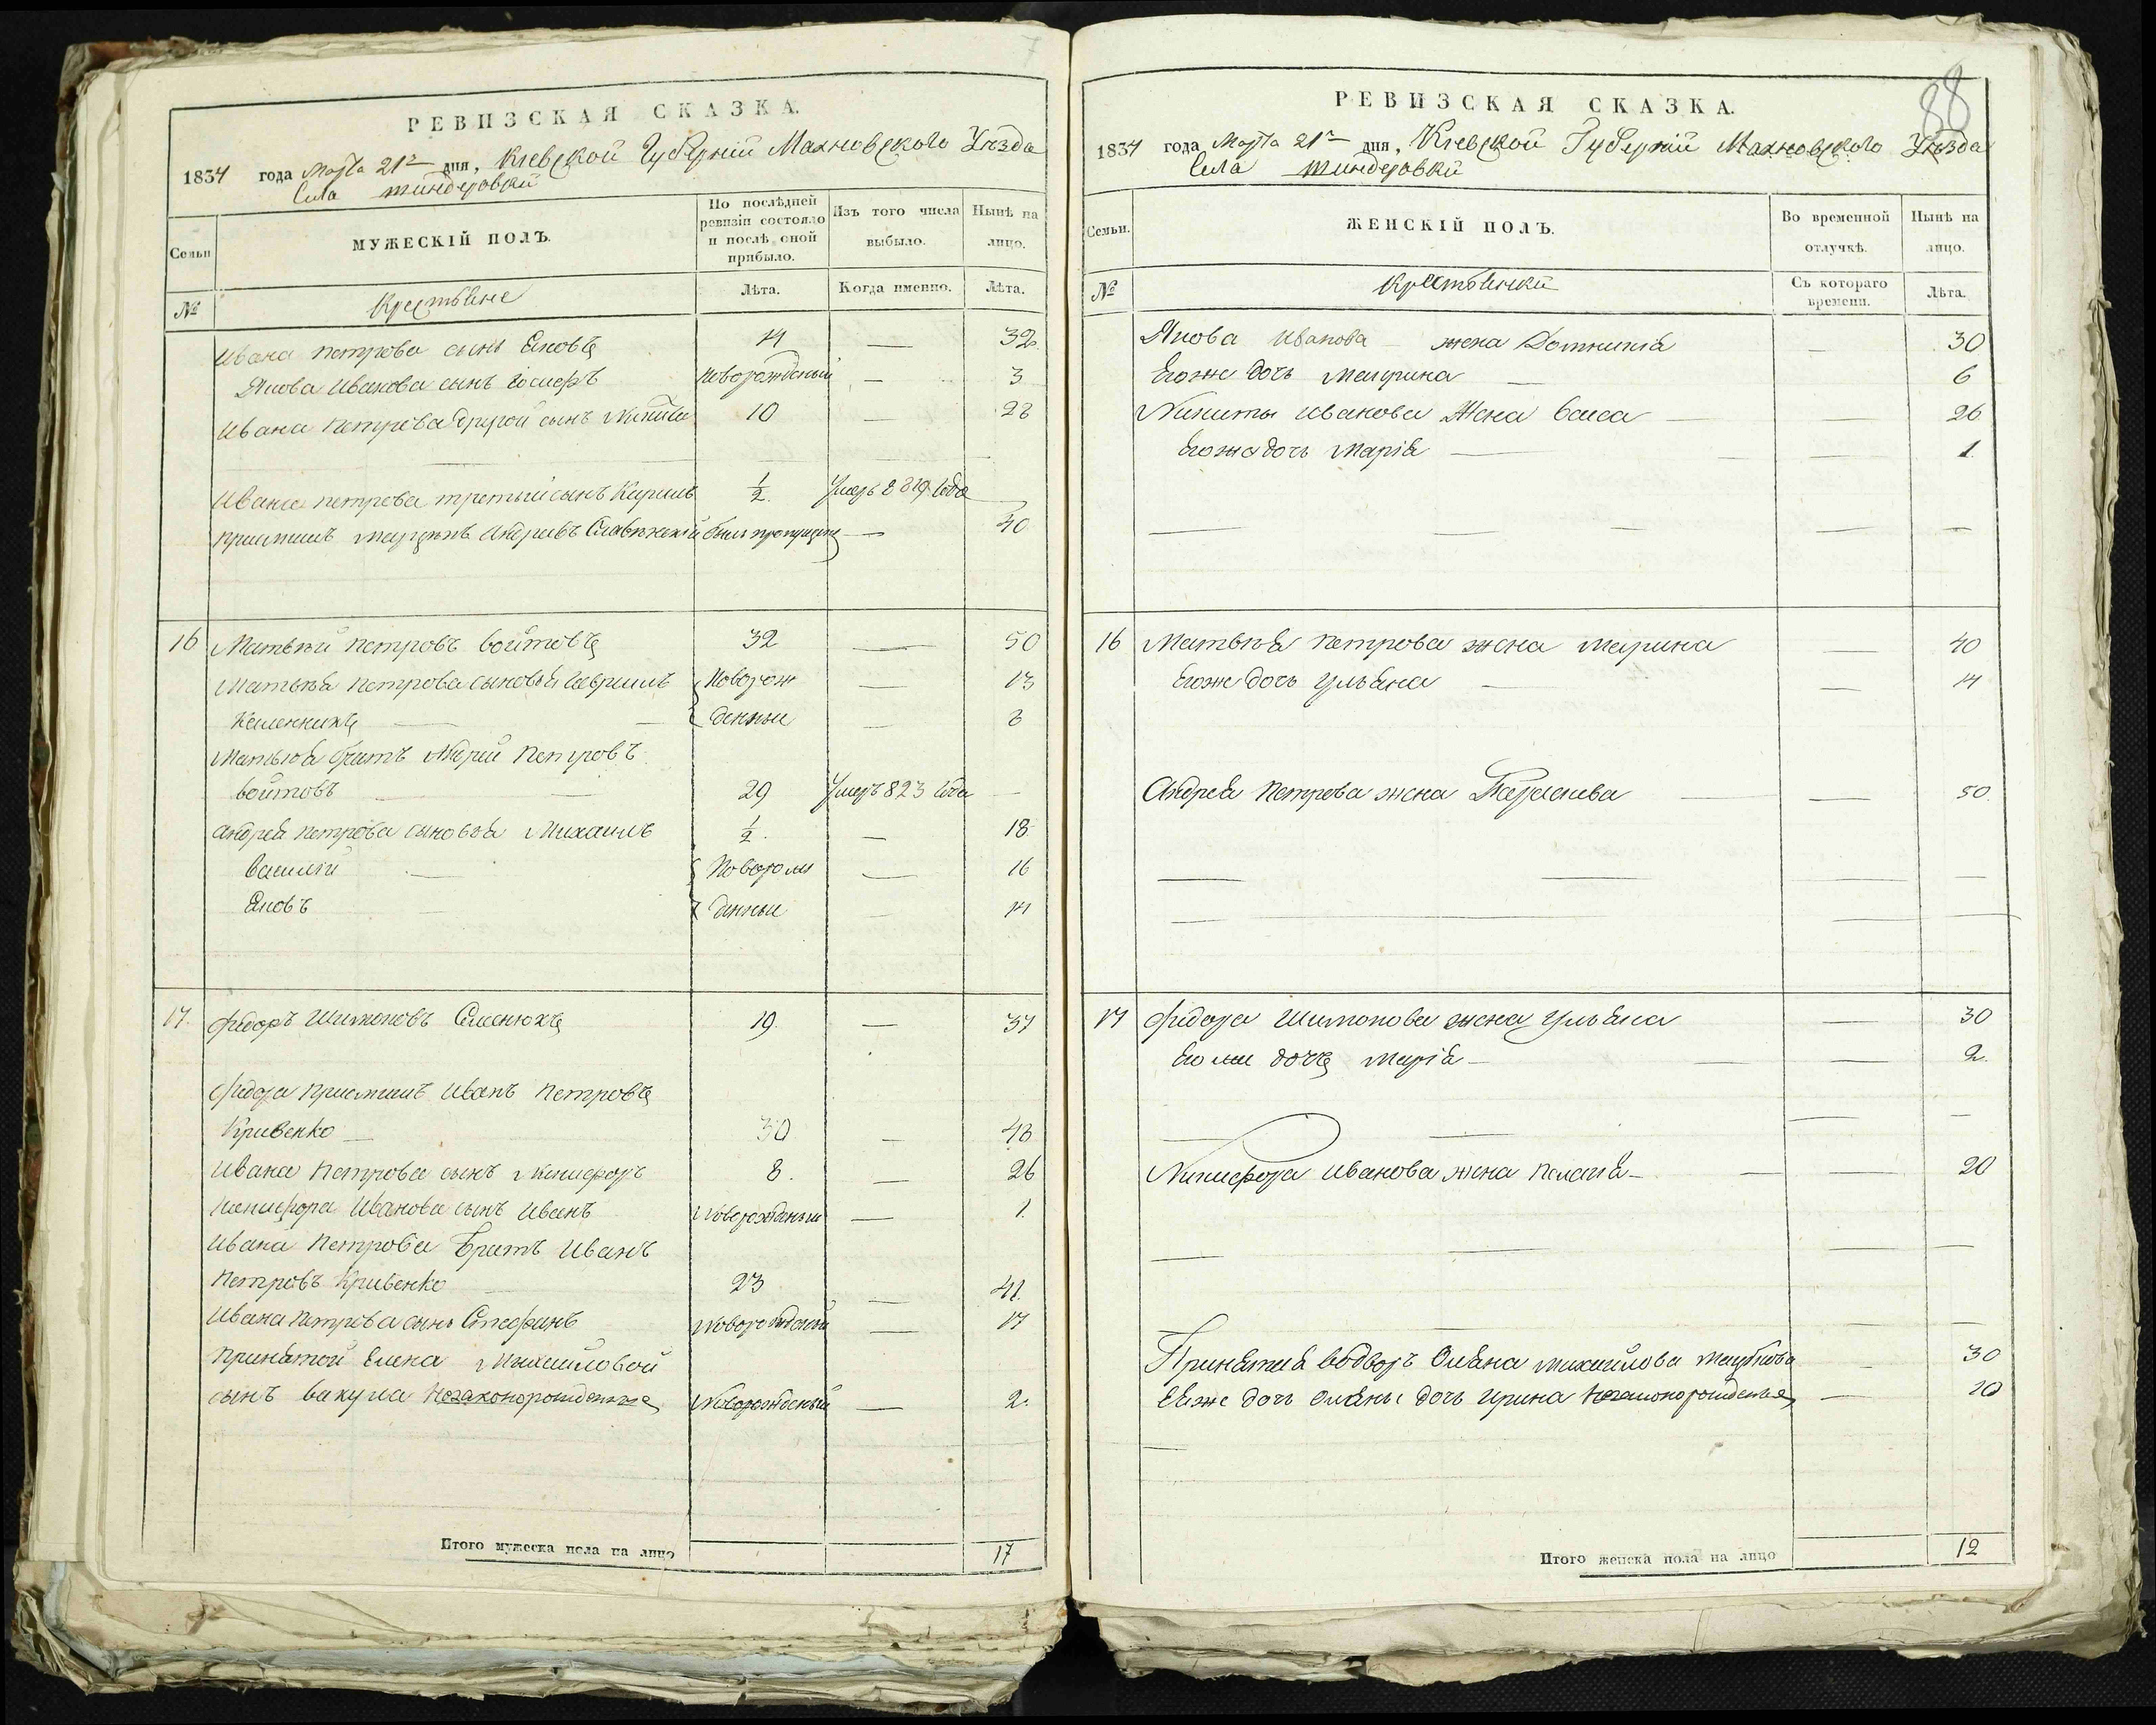 7
РЕВИЗСКАЯ СКАЗКА.
1834 года Марта 21го дня, Кіевской Губерніи Махновского Уѣзда
Села Тиндеровки
Семьи
МУЖЕСКІЙ ПОЛЪ.
По послѣдней ревизіи состояло и послѣ оной прибыло.
Изъ того числа выбыло.
Нынѣ на лицо.
№
Крестьяне
Лѣта.
Когда именно.
Лѣта.
Ивана Петрова сынъ Яковъ 14 — 32.
Якова Иванова сынъ Іосифъ Новорожденый — 3
Ивана Петрова другой сынъ Никита 10 — 28
Ивана Петрова третый сынъ Кирилъ 1/2. Умеръ 819. Года
Приимышъ Мартынъ Андріевъ былъ пропущенъ — 40
16 Матьвѣй Петровъ Войтовъ 32 — 50
Матьвѣя Петрова сыновья Гавриилъ { Новорож — 13
{ денныи — 8
Матьвѣя братъ Андрій Петровъ
Войтовъ — 29 Умеръ 823 Года —
Андрея Петрова сыновья Михаилъ 1/2. — 18
Василій — { Новорож — 16
Яковъ — { денныи — 14
17. Фидоръ Шимоновъ Семенюкъ 19. — 37
Фидора Приимышъ Иванъ Петровъ
Кривенко — 30 — 48
Ивана Петрова сынъ Никифоръ 8. — 26
Никифора Иванова сынъ Иванъ Новорожденыи — 1.
Ивана Петрова Братъ Иванъ
Петровъ Кривенко 23 — 41.
Ивана Петрова сынъ Стефанъ Новорожденый — 17
Принятой Еллена Михайловой
сынъ Вакула Незаконорожденые Новорожденый — 2.
Итого мужеска пола на лицо 17
88
РЕВИЗСКАЯ СКАЗКА.
1834 года Марта 21го дня, Кіевской Губерніи Махновского Уѣзда
Села Тиндеровки
Семьи.
ЖЕНСКІЙ ПОЛЪ.
Во временной отлучкѣ.
Нынѣ на лицо.
№
Крестьянки
Съ котораго времени.
Лѣта.
Якова Иванова жена Домникія — 30
Егоже дочь Маѵрина — — 6
Никиты Иванова Жена Васса — — 26
Егоже дочь Марія — — 1.
— — — —
16 Матьвѣя Петрова жена Марина — 40
Егоже дочь Ульяна — — 14
Андрея Петрова жена Параскева — — 50.
— — — —
— — —
17 Фидора Шимонова жена Ульяна — 30
Егоже дочъ Марія — — 2.
— — — —
Никифора Иванова жена Пелагія — — 20
— — — —
— — — —
Принятая вдворъ Оляна Михайлова — 30
Еяже дочь Оляны дочь Ирина Незаконорожденые — 10
—
Итого женска пола на лицо 12